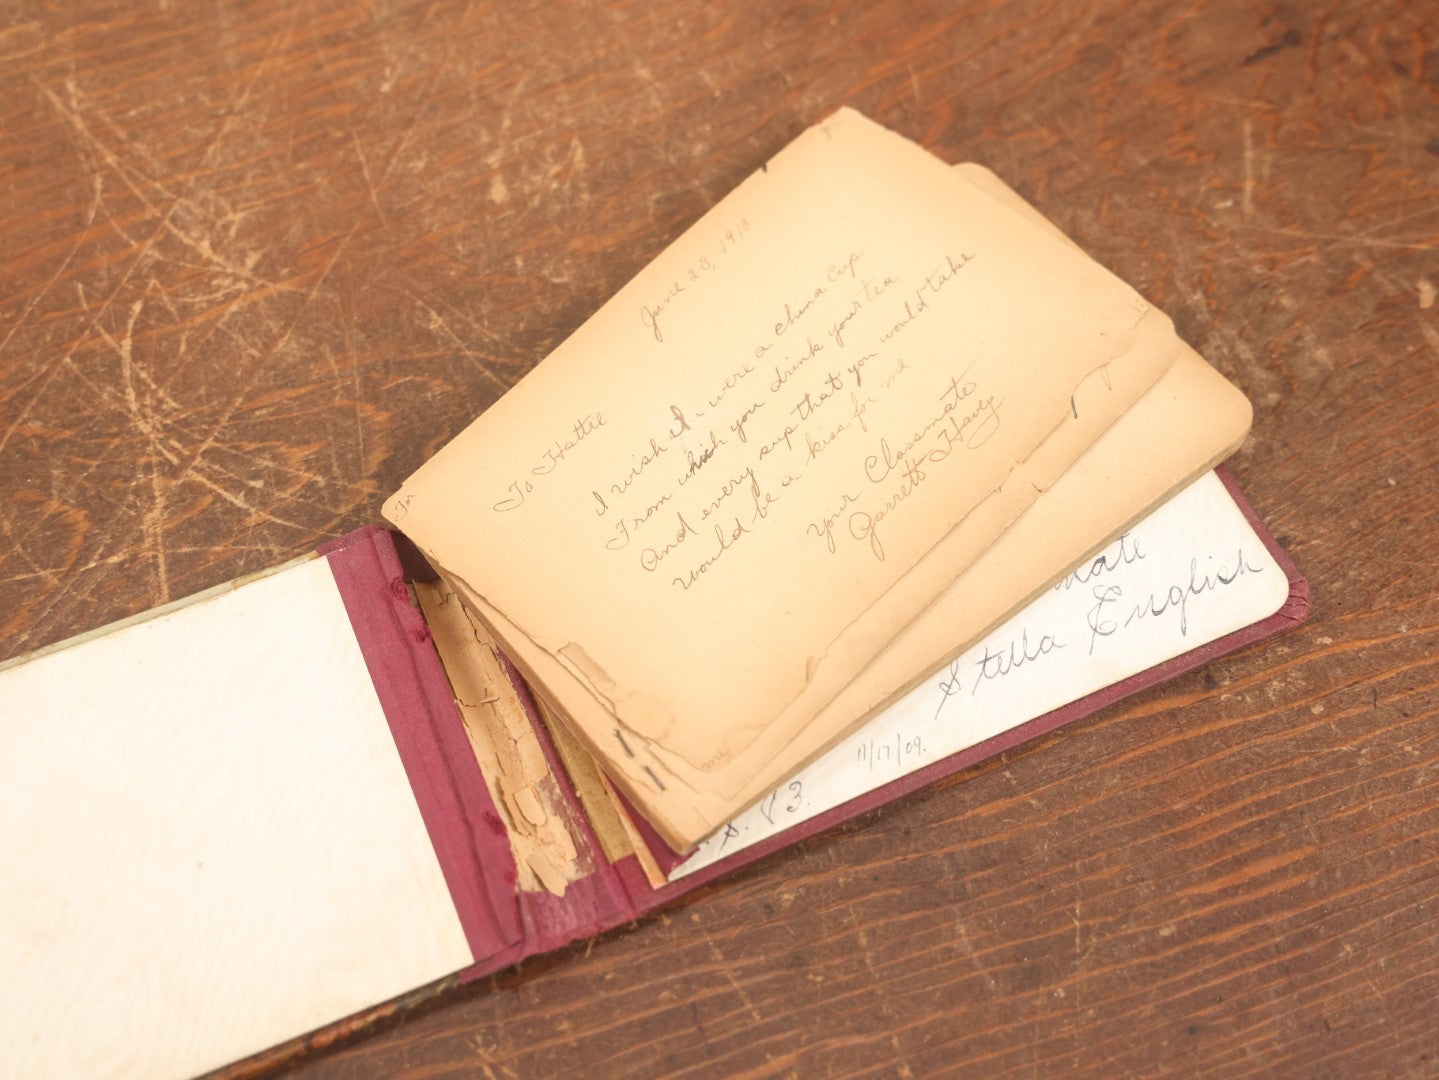 June 23, 1910
To Hattie
I wish I were a china Cup
From which you drink your tea
And every sup that you would take
would be a kiss for me
your Classmate
Garrett Havey
For
me
mate
Stella English
11/17/09.
S. P3.